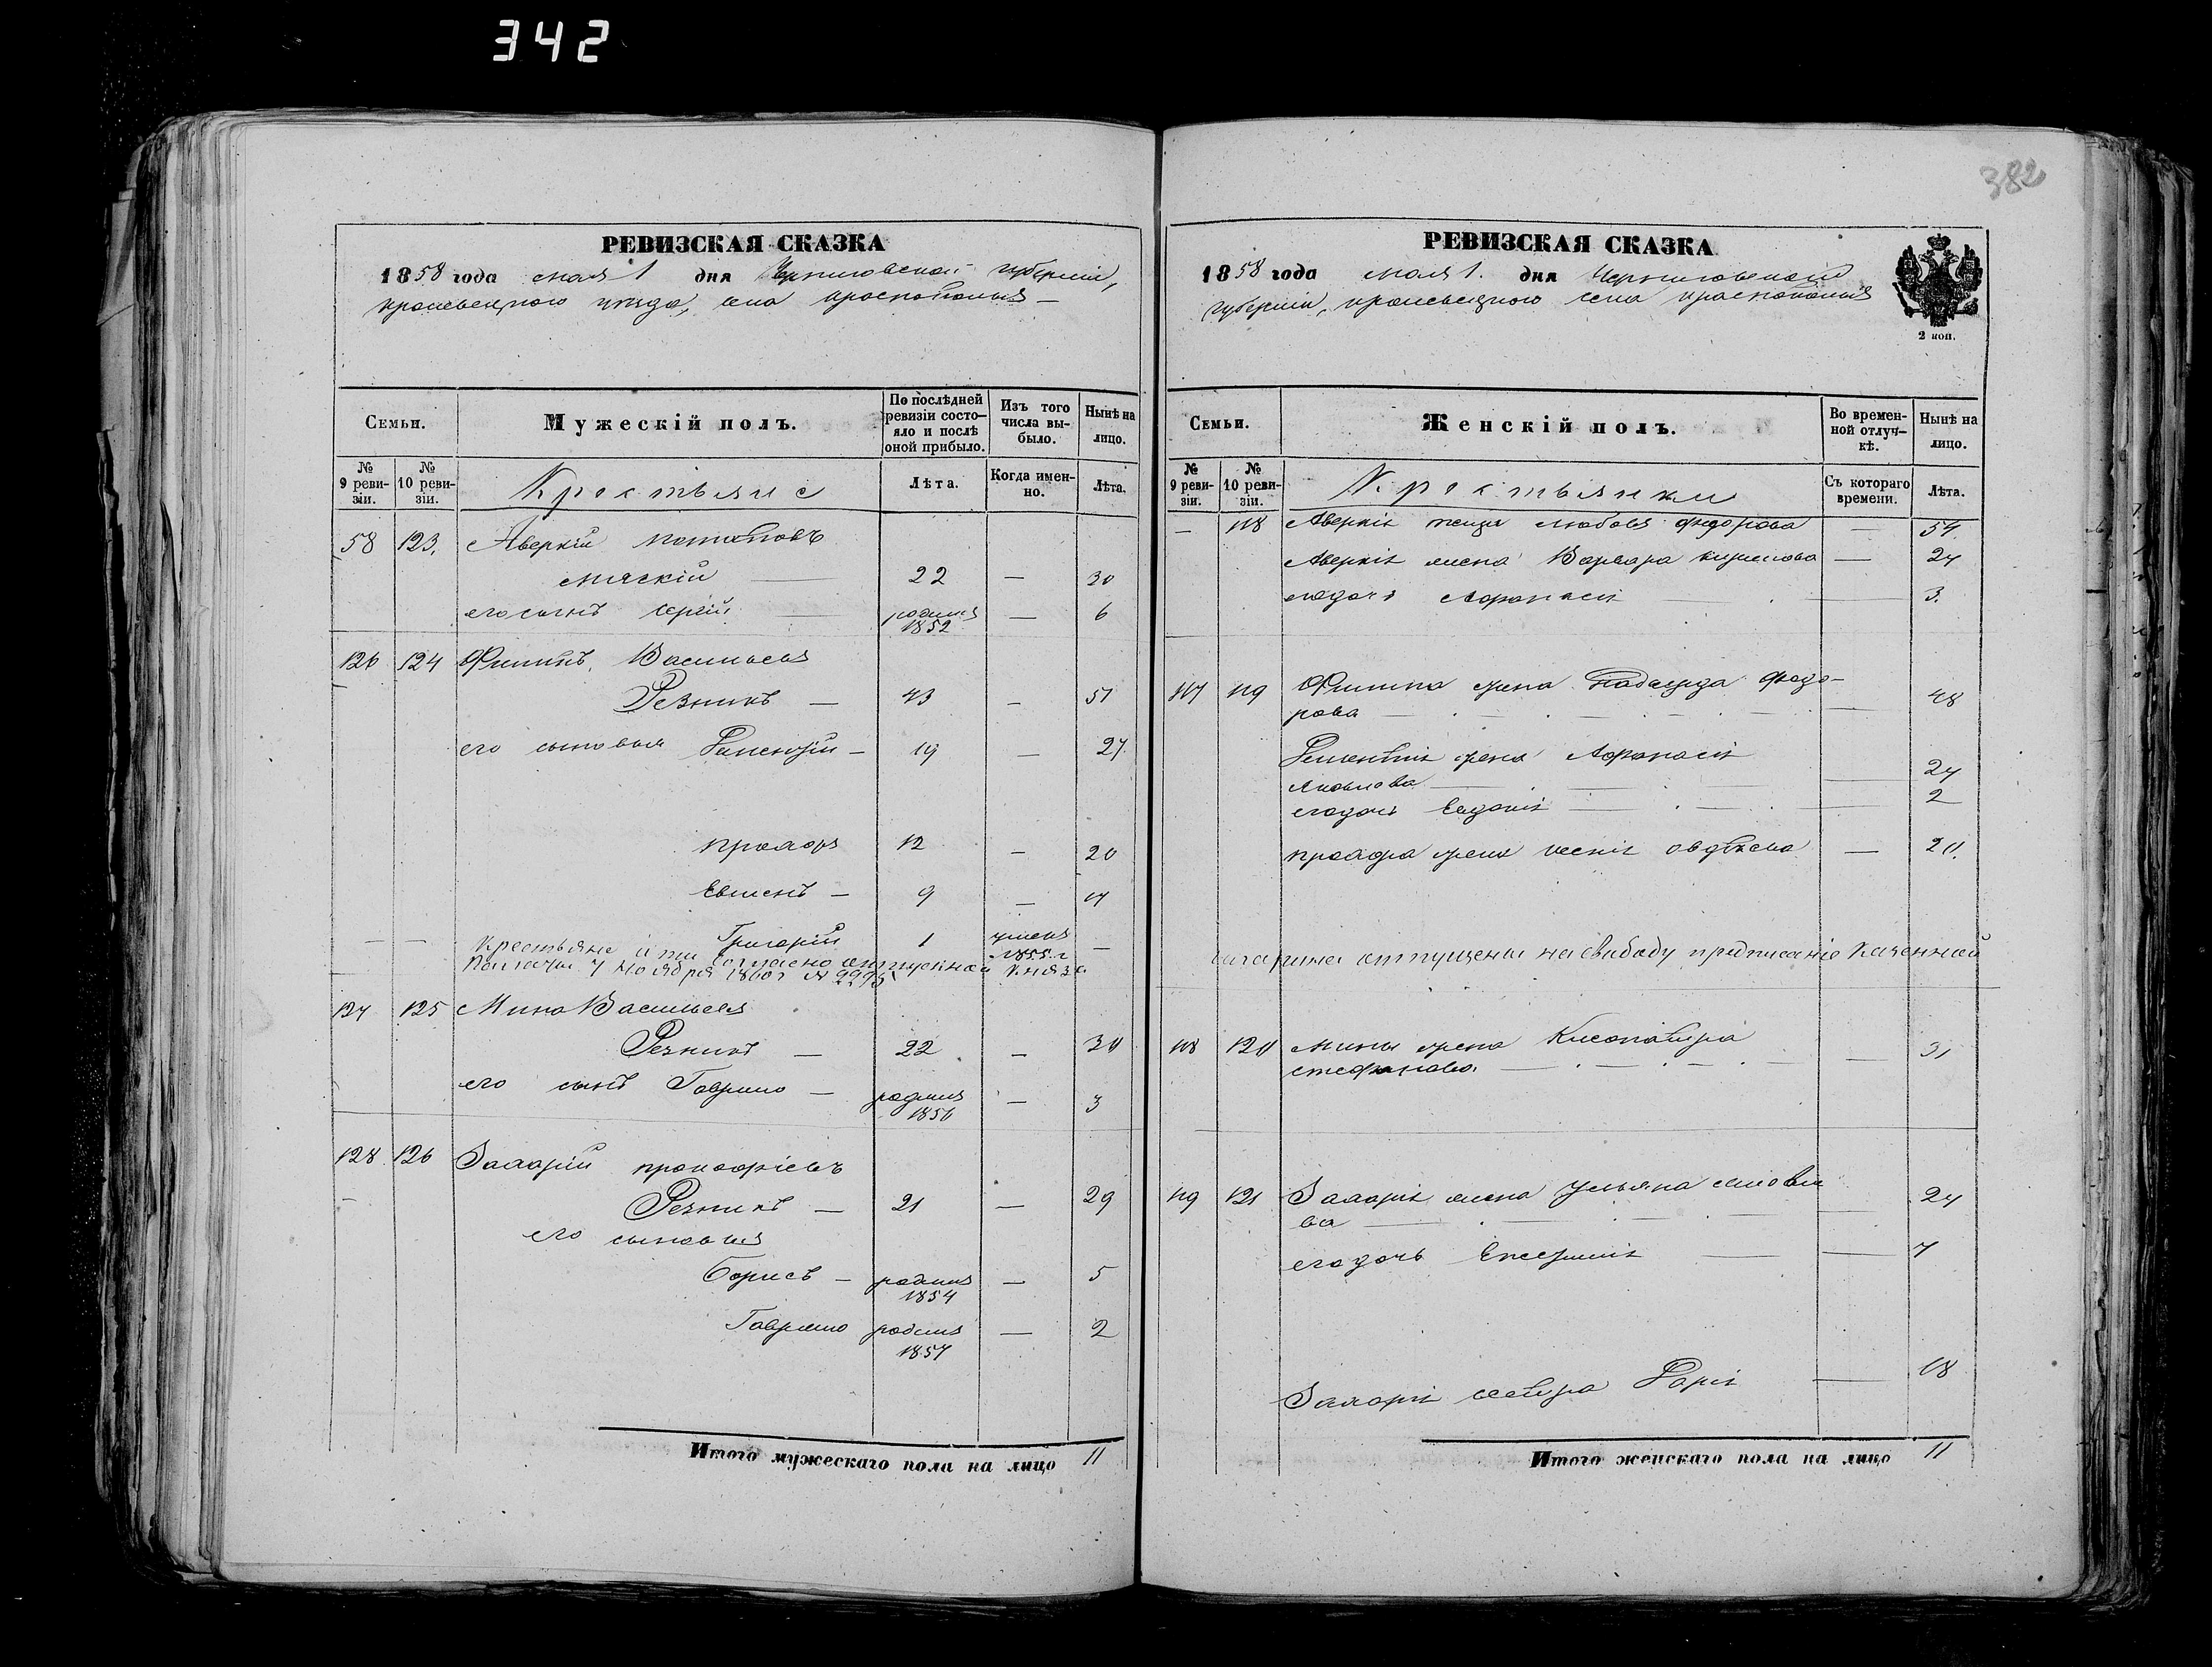 342
РЕВИЗСКАЯ СКАЗКА
1858 года мая 1 дня Черниговской губерніи,
кролевецкого уѣзда, села
Семьи.
Мужескій полъ.
По послѣдней ревизіи состояло и послѣ оной прибыло.
Изъ того числа выбыло.
Нынѣ на лицо.
№ 9 ревизіи.
№ 10 ревизіи.
Крестьяне
Лѣта.
Когда именно.
Лѣта.
58 123. Аверкій Потаповъ
22 — 30
его сынъ Сергій родился 1852 — 6
126 124 Филипъ Васильевъ
Резникъ — 43 — 51
его сыновья — 19 — 27
12 — 20
9 —
— — Григорій 1 умеръ 1855 г. —
Крестьяне эти согласно отпускной Князя
Палаты 7 Ноября 1860 г №
127 125 Мина Васильевъ
Резникъ — 22 — 30
его сынъ Гаврило — родился 1856 — 3
128 126 Захарій Прокофіевъ
Резникъ — 21 — 29
его сыновья
Борисъ — родился 1854 — 5
Гаврило родился 1857 — 2
Итого мужескаго пола на лицо 11
382
РЕВИЗСКАЯ СКАЗКА
1858 года мая 1. дня Черниговской
губерніи, кролевецкого села
2 коп.
Семьи.
Женскій полъ.
Во временной отлучкѣ.
Нынѣ на лицо.
№ 9 ревизіи.
№ 10 ревизіи.
Крестьянки
Съ котораго времени.
Лѣта.
— 118 Аверкія теща Любовь Федорова —
Аверкія жена Варвара — 24
его дочь Афанасія — 3.
117 119 Филипа жена Надежда Федо-
рова — 48
жена Афанасія
Яковлева — 24
его дочь Евдокія — 2
жена Ксенія — 20.
Гагарина отпущены на свабоду предписание Казенной
118 120 Мины жена Клеопатра
Стефанова — 31
119 121 Захарія жена Ульяна
ва — 24
его дочь — 7
Захарія сестра — 18
Итого женскаго пола на лицо 11